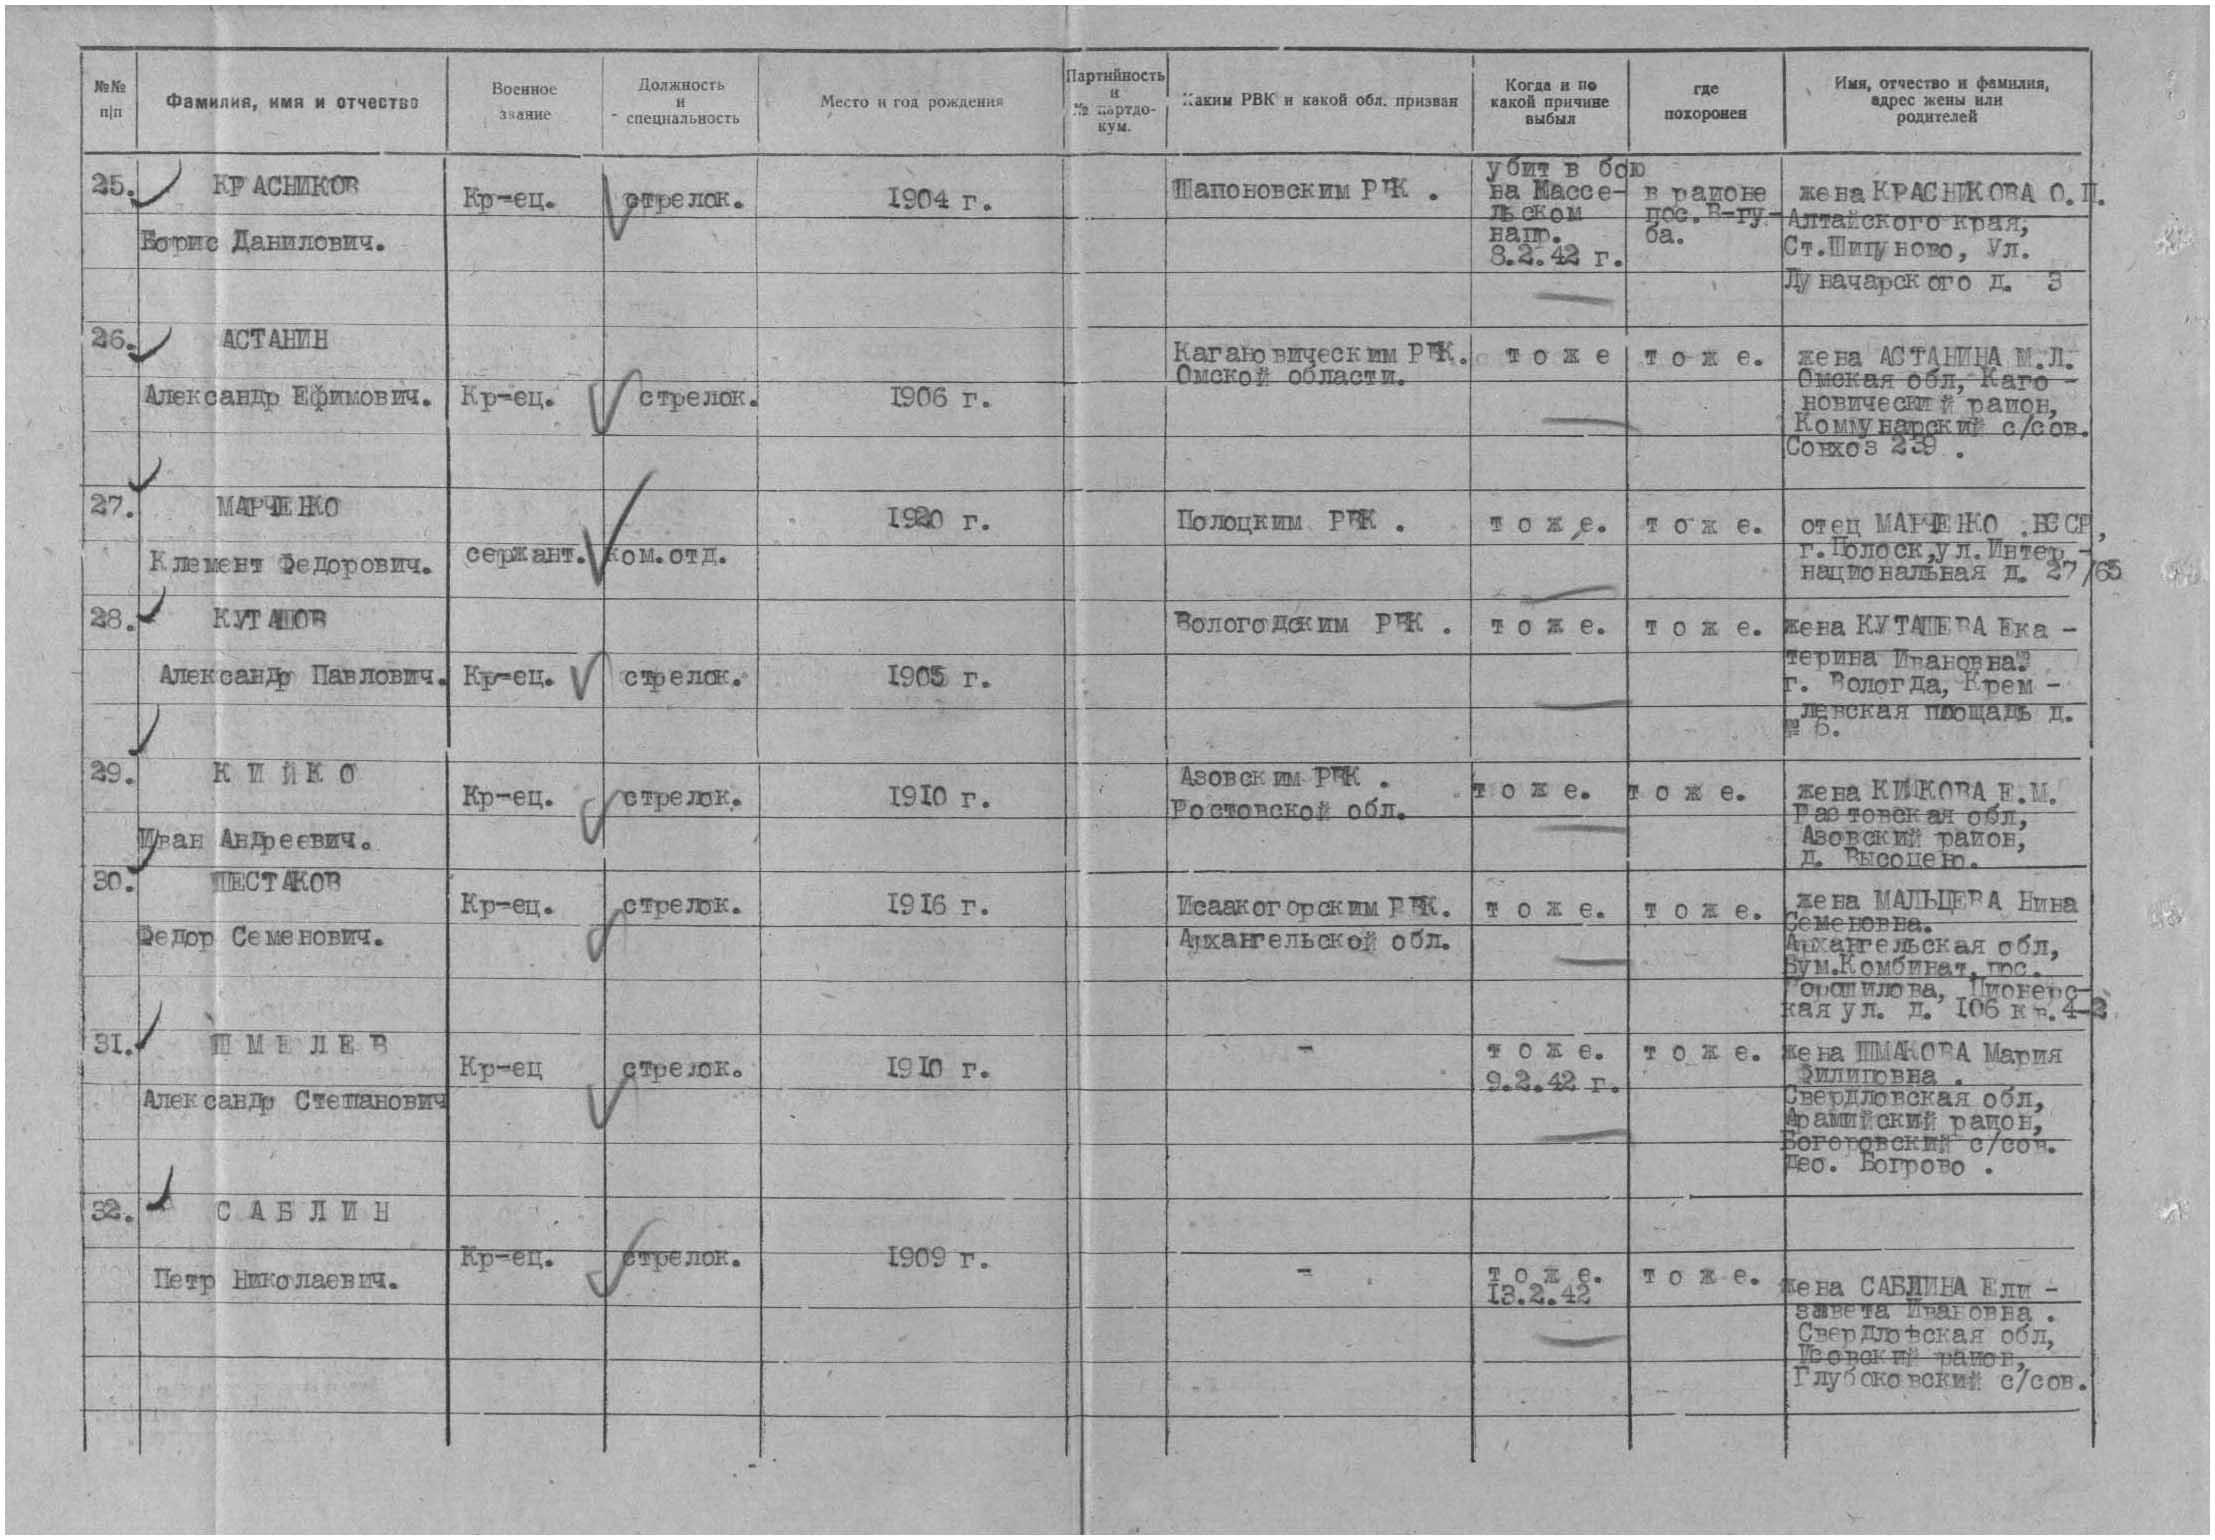 №№
п/п
Фамилия, имя и отчество
Военное
звание
Должность
и
специальность
Место и год рождения
Партийность
и
№ партдо-
кум.
Каким РВК и какой обл. призван
Когда и по
какой причине
выбыл
где
похоронен
Имя, отчество и фамилия,
адрес жены или
родителей
25.
КРАСНИКОВ
Борис Данилович.
Кр-ец.
стрелок.
1904 г.
Шапоновским РВК .
убит в бою
на Массе-
льском
напр.
8.2.42 г.
в районе
пос. В-гу-
ба.
жена КРАСНИКОВА О.П.
Алтайского края,
Ст.Шипуново, Ул.
Луначарского д. 3
26.
АСТАНИН
Александр Ефимович.
Кр-ец.
стрелок.
1906 г.
Кагановическим РВК.
Омской области.
т о ж е
т о ж е.
жена АСТАНИНА М.Л.
Омская обл, Каго -
новический район,
Коммунарский с/сов.
Совхоз 239 .
27.
МАРЧЕНКО
Клемент Федорович.
сержант.
ком.отд.
1920 г.
Полоцким РВК .
т о ж е.
т о ж е.
отец МАРЧЕНКО .БССР,
г.Полоск,ул.Интер -
национальная д. 27/65
28.
КУТАШОВ
Александр Павлович.
Кр-ец.
стрелок.
1905 г.
Вологодским РВК .
т о ж е.
т о ж е.
жена КУТАШЕВА Ека -
терина Ивановна.
г. Вологда, Крем -
левская площадь д.
№ 6.
29.
К И Й К О
Иван Андреевич.
Кр-ец.
стрелок.
1910 г.
Азовским РВК .
Ростовской обл.
т о ж е.
т о ж е.
жена КИЙКОВА Е.М.
Растовская обл,
Азовский район,
д. Высоцею.
30.
ШЕСТАКОВ
Федор Семенович.
Кр-ец.
стрелок.
1916 г.
Исаакогорским РВК.
Архангельской обл.
т о ж е.
т о ж е.
жена МАЛЬЦЕВА Нина
Семеновна.
Архангельская обл,
Бум.Комбинат, пос.
Ворошилова, Пионерс-
кая ул. д. 106 кв.4-2
31.
Ш М Е Л Е В
Александр Степанович
Кр-ец
стрелок.
1910 г.
-
т о ж е.
9.2.42 г.
т о ж е.
жена ШМАКОВА Мария
Филиповна .
Свердловская обл,
Арамийский район,
Богоровский с/сов.
део. Богрово .
32.
С А Б Л И Н
Петр Николаевич.
Кр-ец.
стрелок.
1909 г.
-
т о ж е.
13.2.42
т о ж е.
жена САБЛИНА Ели -
завета Ивановна .
Свердловская обл,
Исовский район,
Глубоковский с/сов.